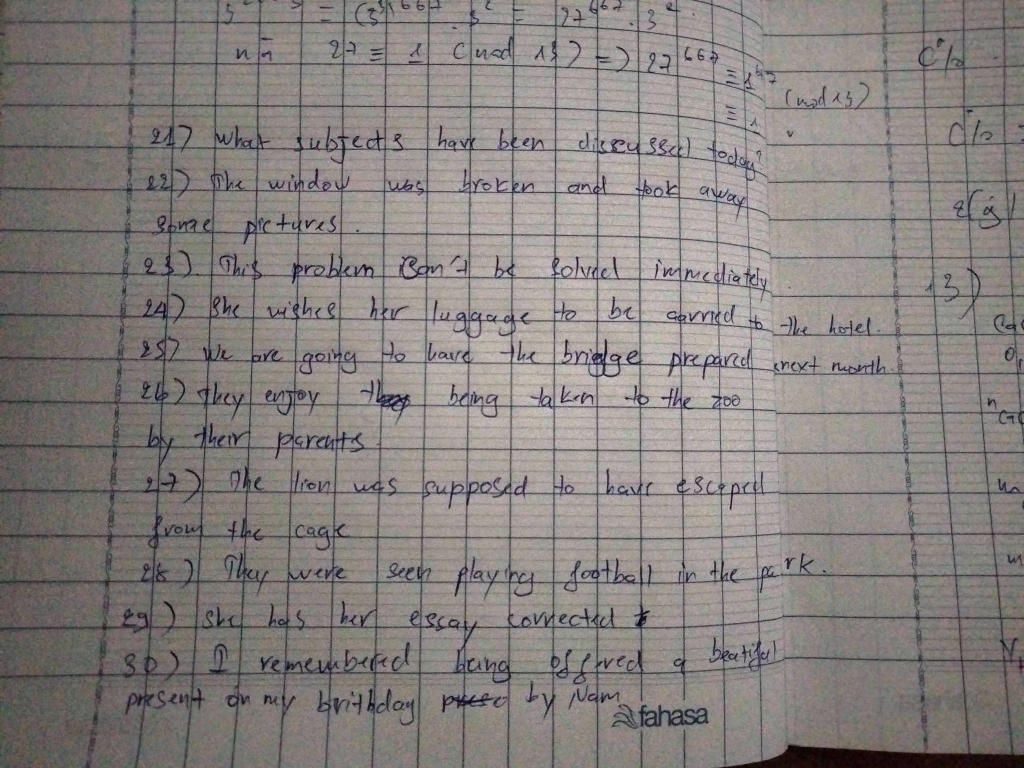 = (3³)⁶⁶⁷ . 3² = 27⁶⁶⁷ . 3²
27 ≡ 1 (mod 13) => 27⁶⁶⁷ ≡ 1⁶⁶⁷ (mod 13)
≡ 1
21) What subjects have been disscussed today?
22) The window was broken and took away
some pictures.
23) This problem can't be solved immediately
24) She wishes her luggage to be carried to the hotel.
25) We are going to have the bridge prepared next month.
26) They enjoy being taken to the zoo
by their parents.
27) The lion was supposed to have escaped
from the cage
28) They were seen playing football in the park.
29) She has her essay corrected
30) I remembered being offered a beatiful
present on my brithday by Nam
fahasa
13)